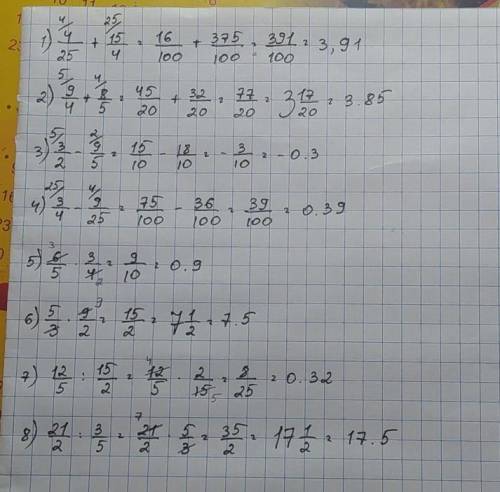 1) ⁴/4/25 + ²⁵/15/4 = 16/100 + 375/100 = 391/100 = 3,91
2) ⁵/9/4 + ⁴/8/5 = 45/20 + 32/20 = 77/20 = 3 17/20 = 3.85
3) ⁵/3/2 - ²/9/5 = 15/10 - 18/10 = - 3/10 = - 0.3
4) ²⁵/3/4 - ⁴/9/25 = 75/100 - 36/100 = 39/100 = 0.39
5) ³6/5 · 3/4₂ = 9/10 = 0.9
6) 5/3 · 9³/2 = 15/2 = 7 1/2 = 7.5
7) 12/5 : 15/2 = ⁴12/5 · 2/15₅ = 8/25 = 0.32
8) 21/2 : 3/5 = ⁷21/2 · 5/3 = 35/2 = 17 1/2 = 17.5